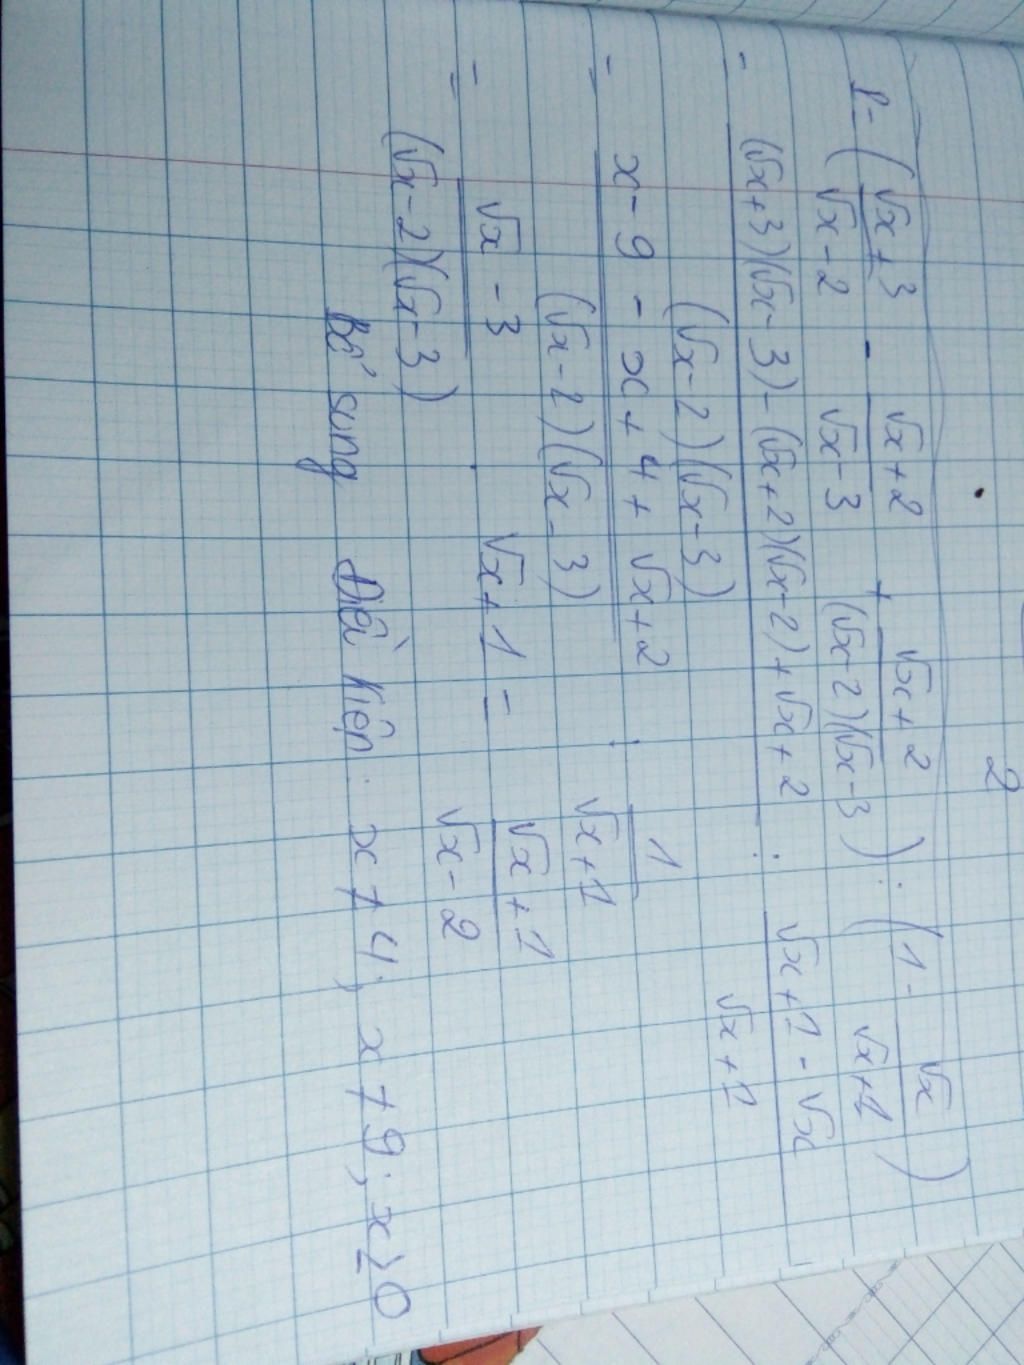 2
P = ( (√x + 3)/(√x - 2) - (√x + 2)/(√x - 3) + (√x + 2)/((√x - 2)(√x - 3)) ) : ( 1 - √x/(√x + 1) )
= ((√x + 3)(√x - 3) - (√x + 2)(√x - 2) + √x + 2)/((√x - 2)(√x - 3)) : (√x + 1 - √x)/(√x + 1)
= (x - 9 - x + 4 + √x + 2)/((√x - 2)(√x - 3)) : 1/(√x + 1)
= (√x - 3)/((√x - 2)(√x - 3)) . √x + 1 = (√x + 1)/(√x - 2)
Bổ sung Điều kiện : x ≠ 4; x ≠ 9; x ≥ 0